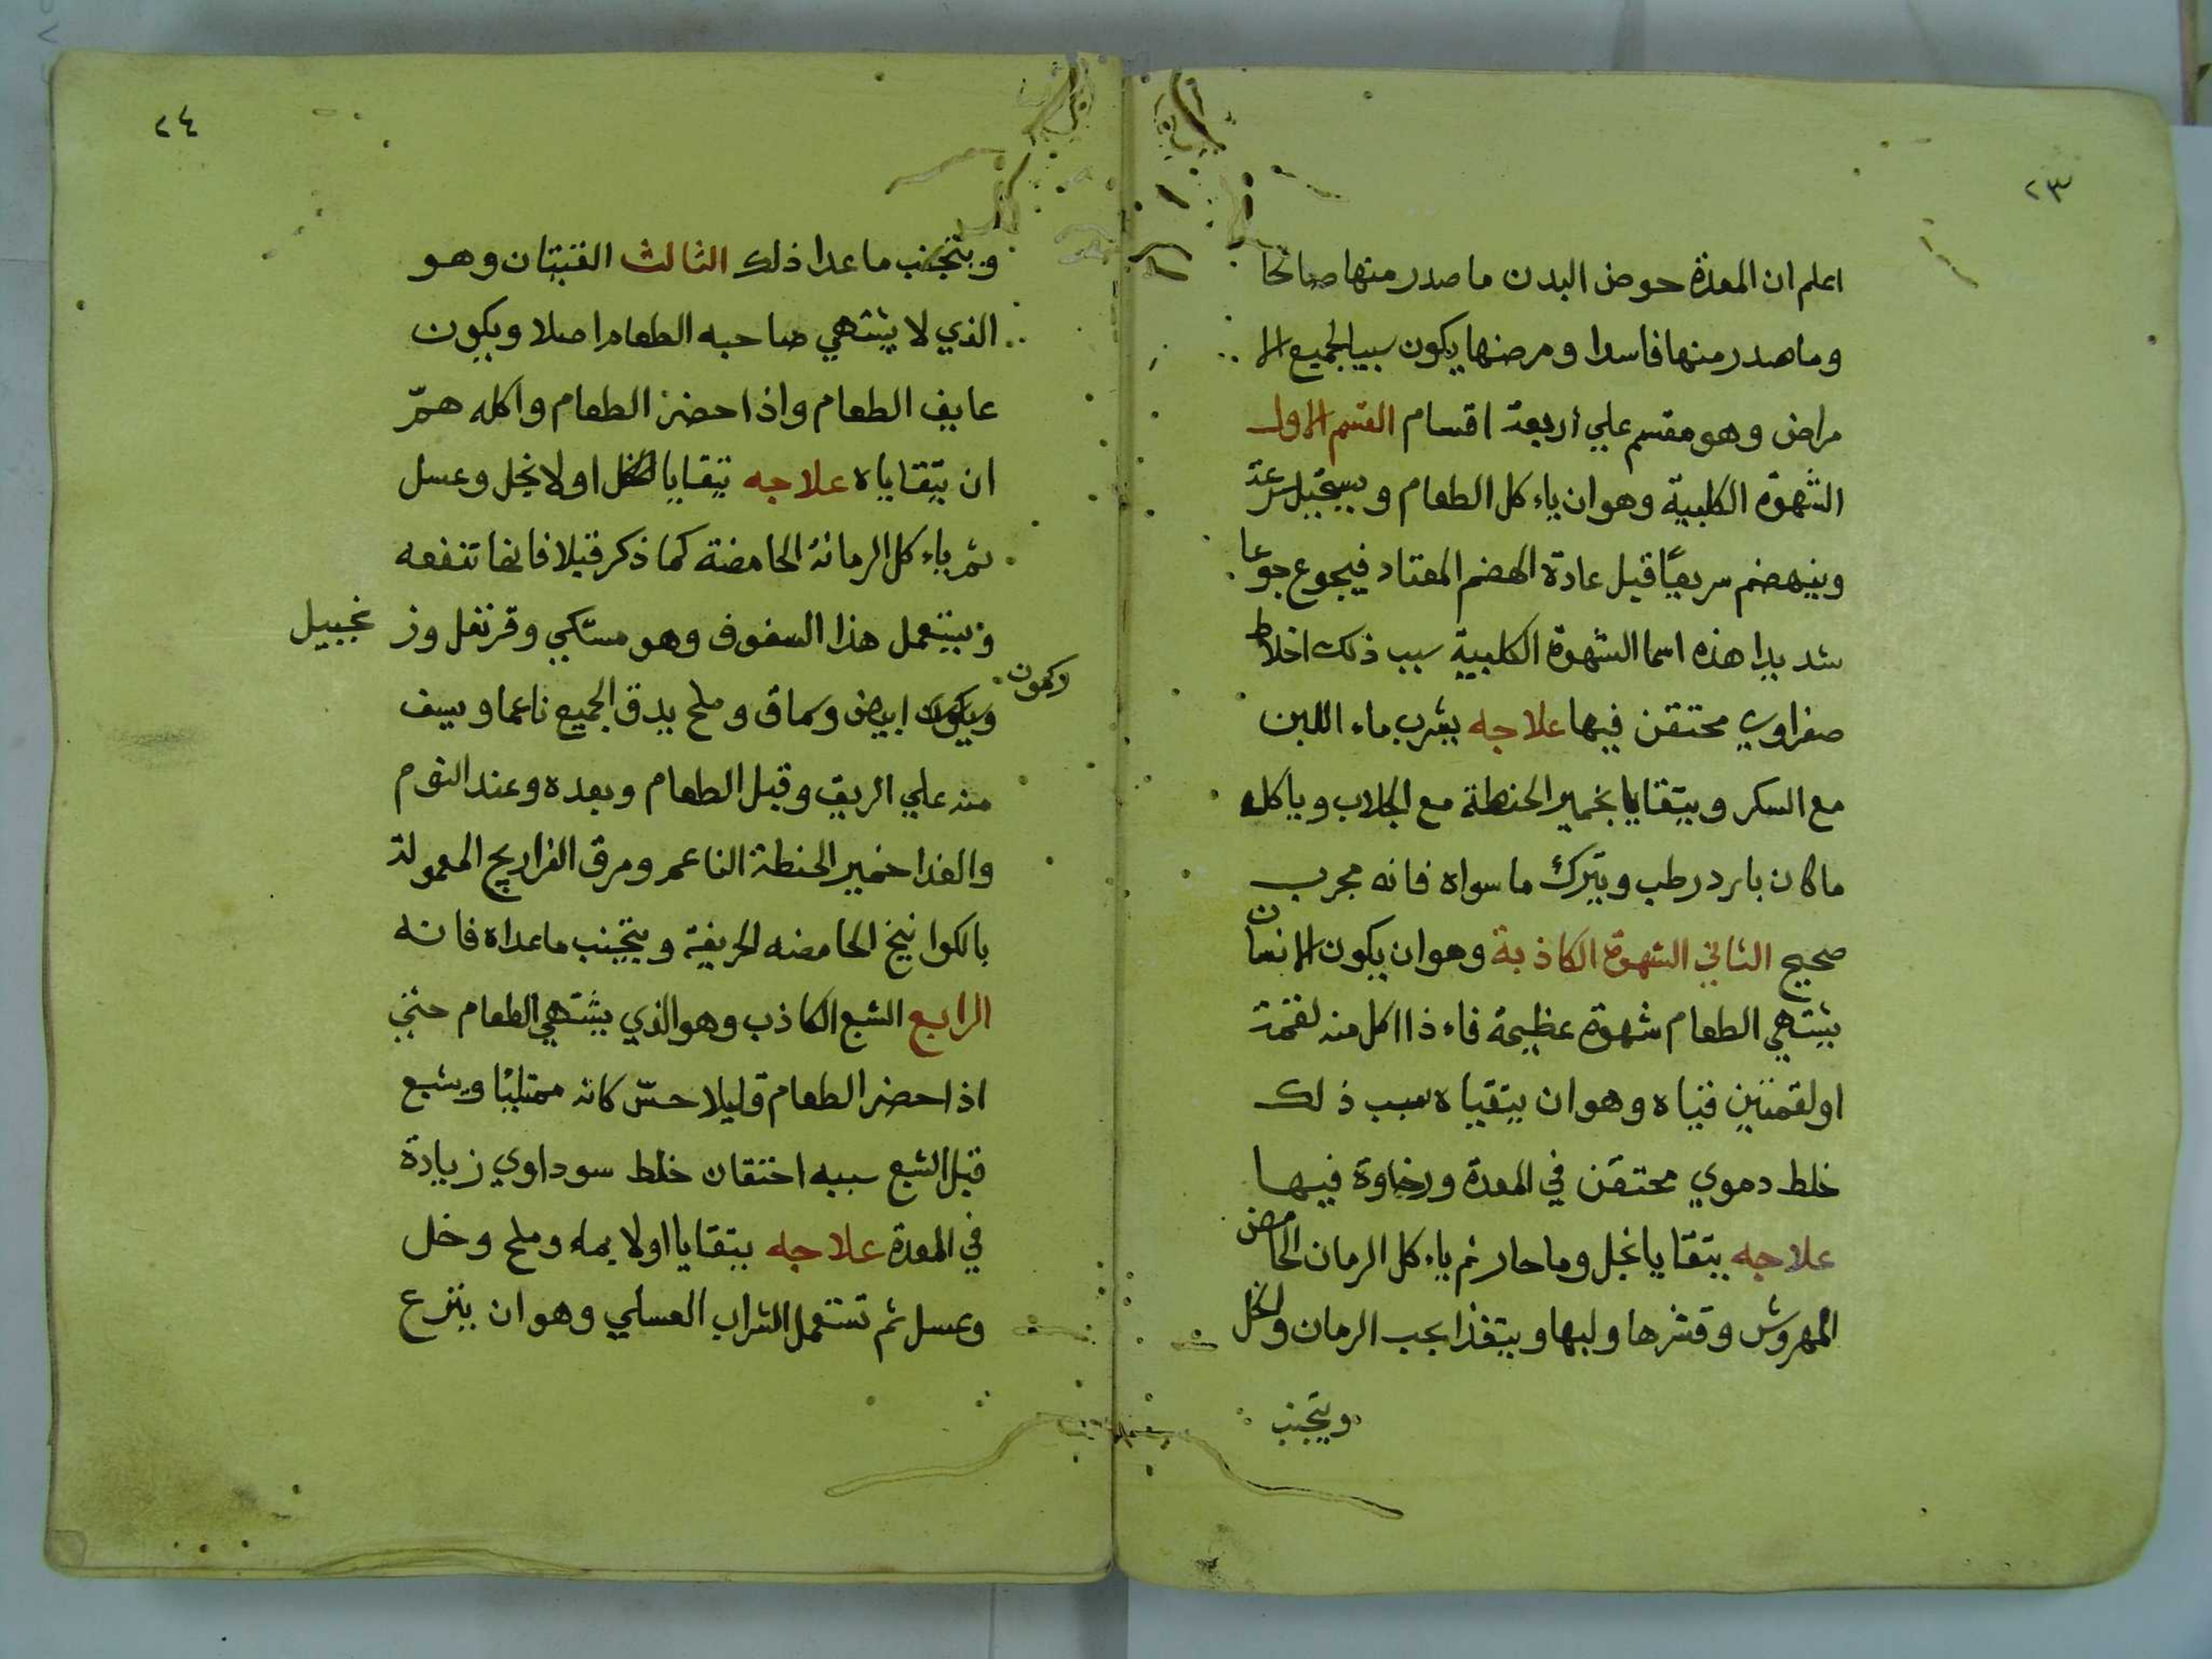 ٢٣
اعلم ان المعدة حوض البدن ما صدر منها صالحا
وما صدر منها فاسدا ومرضها يكون سببا لجميع الا
مراض وهو مقسم علي اربعة اقسام القسم الاول
الشهوة الكلبية وهو ان ياء كل الطعام ويستحيل سرعة
وينهضم سريعًا قبل عادة الهضم المعتاد فيجوع جوعا
شديدا هذه اسما الشهوة الكلبية سبب ذلك اخلاط
صفراوي محتقن فيها علاجه يشرب ماء اللبن
مع السكر ويتقايا بخمير الحنطة مع الجلاب وياكل
ما كان بارد رطب ويترك ما سواه فانه مجرب
صحيح الثاني الشهوة الكاذبة وهو ان يكون الانسان
يشتهي الطعام شهوة عظيمة فاء ذا اكل منه لقمة
او لقمتين قياه وهو ان يتقياه سبب ذلك
خلط دموي محتقن في المعدة ورخاوة فيها
علاجه يتقايا بخل وما حار ثم ياء كل الرمان الحامض
المهروش وقشرها ولبها ويتغذا بحب الرمان والخل
ويتجنب
٢٤
ويتجنب ما عدا ذلك الثالث الغثيان وهو
الذي لا يشتهي صاحبه الطعام اصلا ويكون
عايف الطعام واذا حضر الطعام واكله همّ
ان يتقاياه علاجه يتقايا اولا بخل وعسل
ثم ياء كل الرمانة الحامضة كما ذكر قبلا فانها تنفعه
ويستعمل هذا السفوف وهو مستكي وقرنفل وز نجبيل
وكمون ابيض وسماق وملح يدق الجميع ناعما ويسف
منه علي الريق وقبل الطعام وبعده وعند النوم
والغدا خمير الحنطة الناعم ومرق الفراريج المعمولة
بالكوانيخ الحامضه الحريفة ويتجنب ما عداه فانه
الرابع الشبع الكاذب وهو الذي يشتهي الطعام حتي
اذا حضر الطعام قليلا حسّ كانه ممتليًا ويشبع
قبل الشبع سببه احتقان خلط سوداوي زيادة
في المعدة علاجه يتقايا اولا بماء وملح وخل
وعسل ثم تستعمل الشراب العسلي وهو ان ينزع